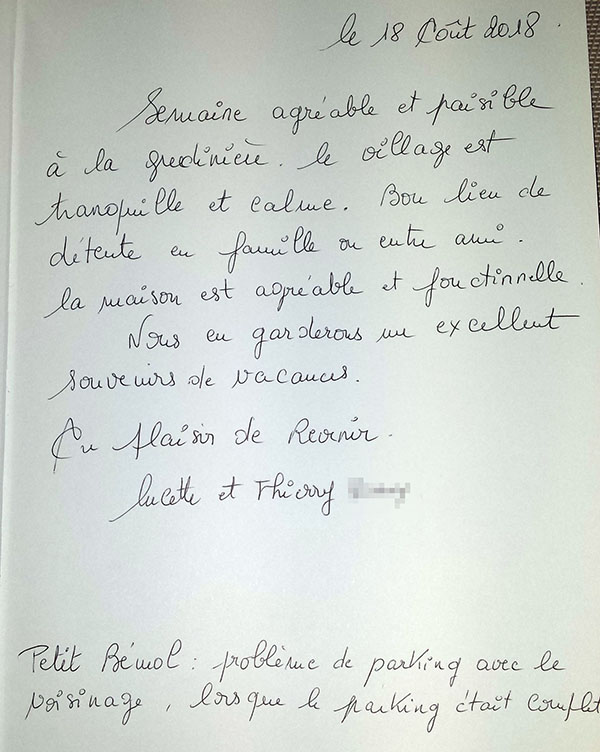 le 18 Août 2018.
Semaine agréable et paisible
à la gredinière. le village est
tranquille et calme. Bon lieu de
détente en famille ou entre ami.
la maison est agréable et fonctionnelle.
Nous en garderons un excellent
souvenirs de vacances.
Au plaisir de Revenir.
lucette et Thierry
Petit Bémol : problème de parking avec le
voisinage, lorsque le parking était complet